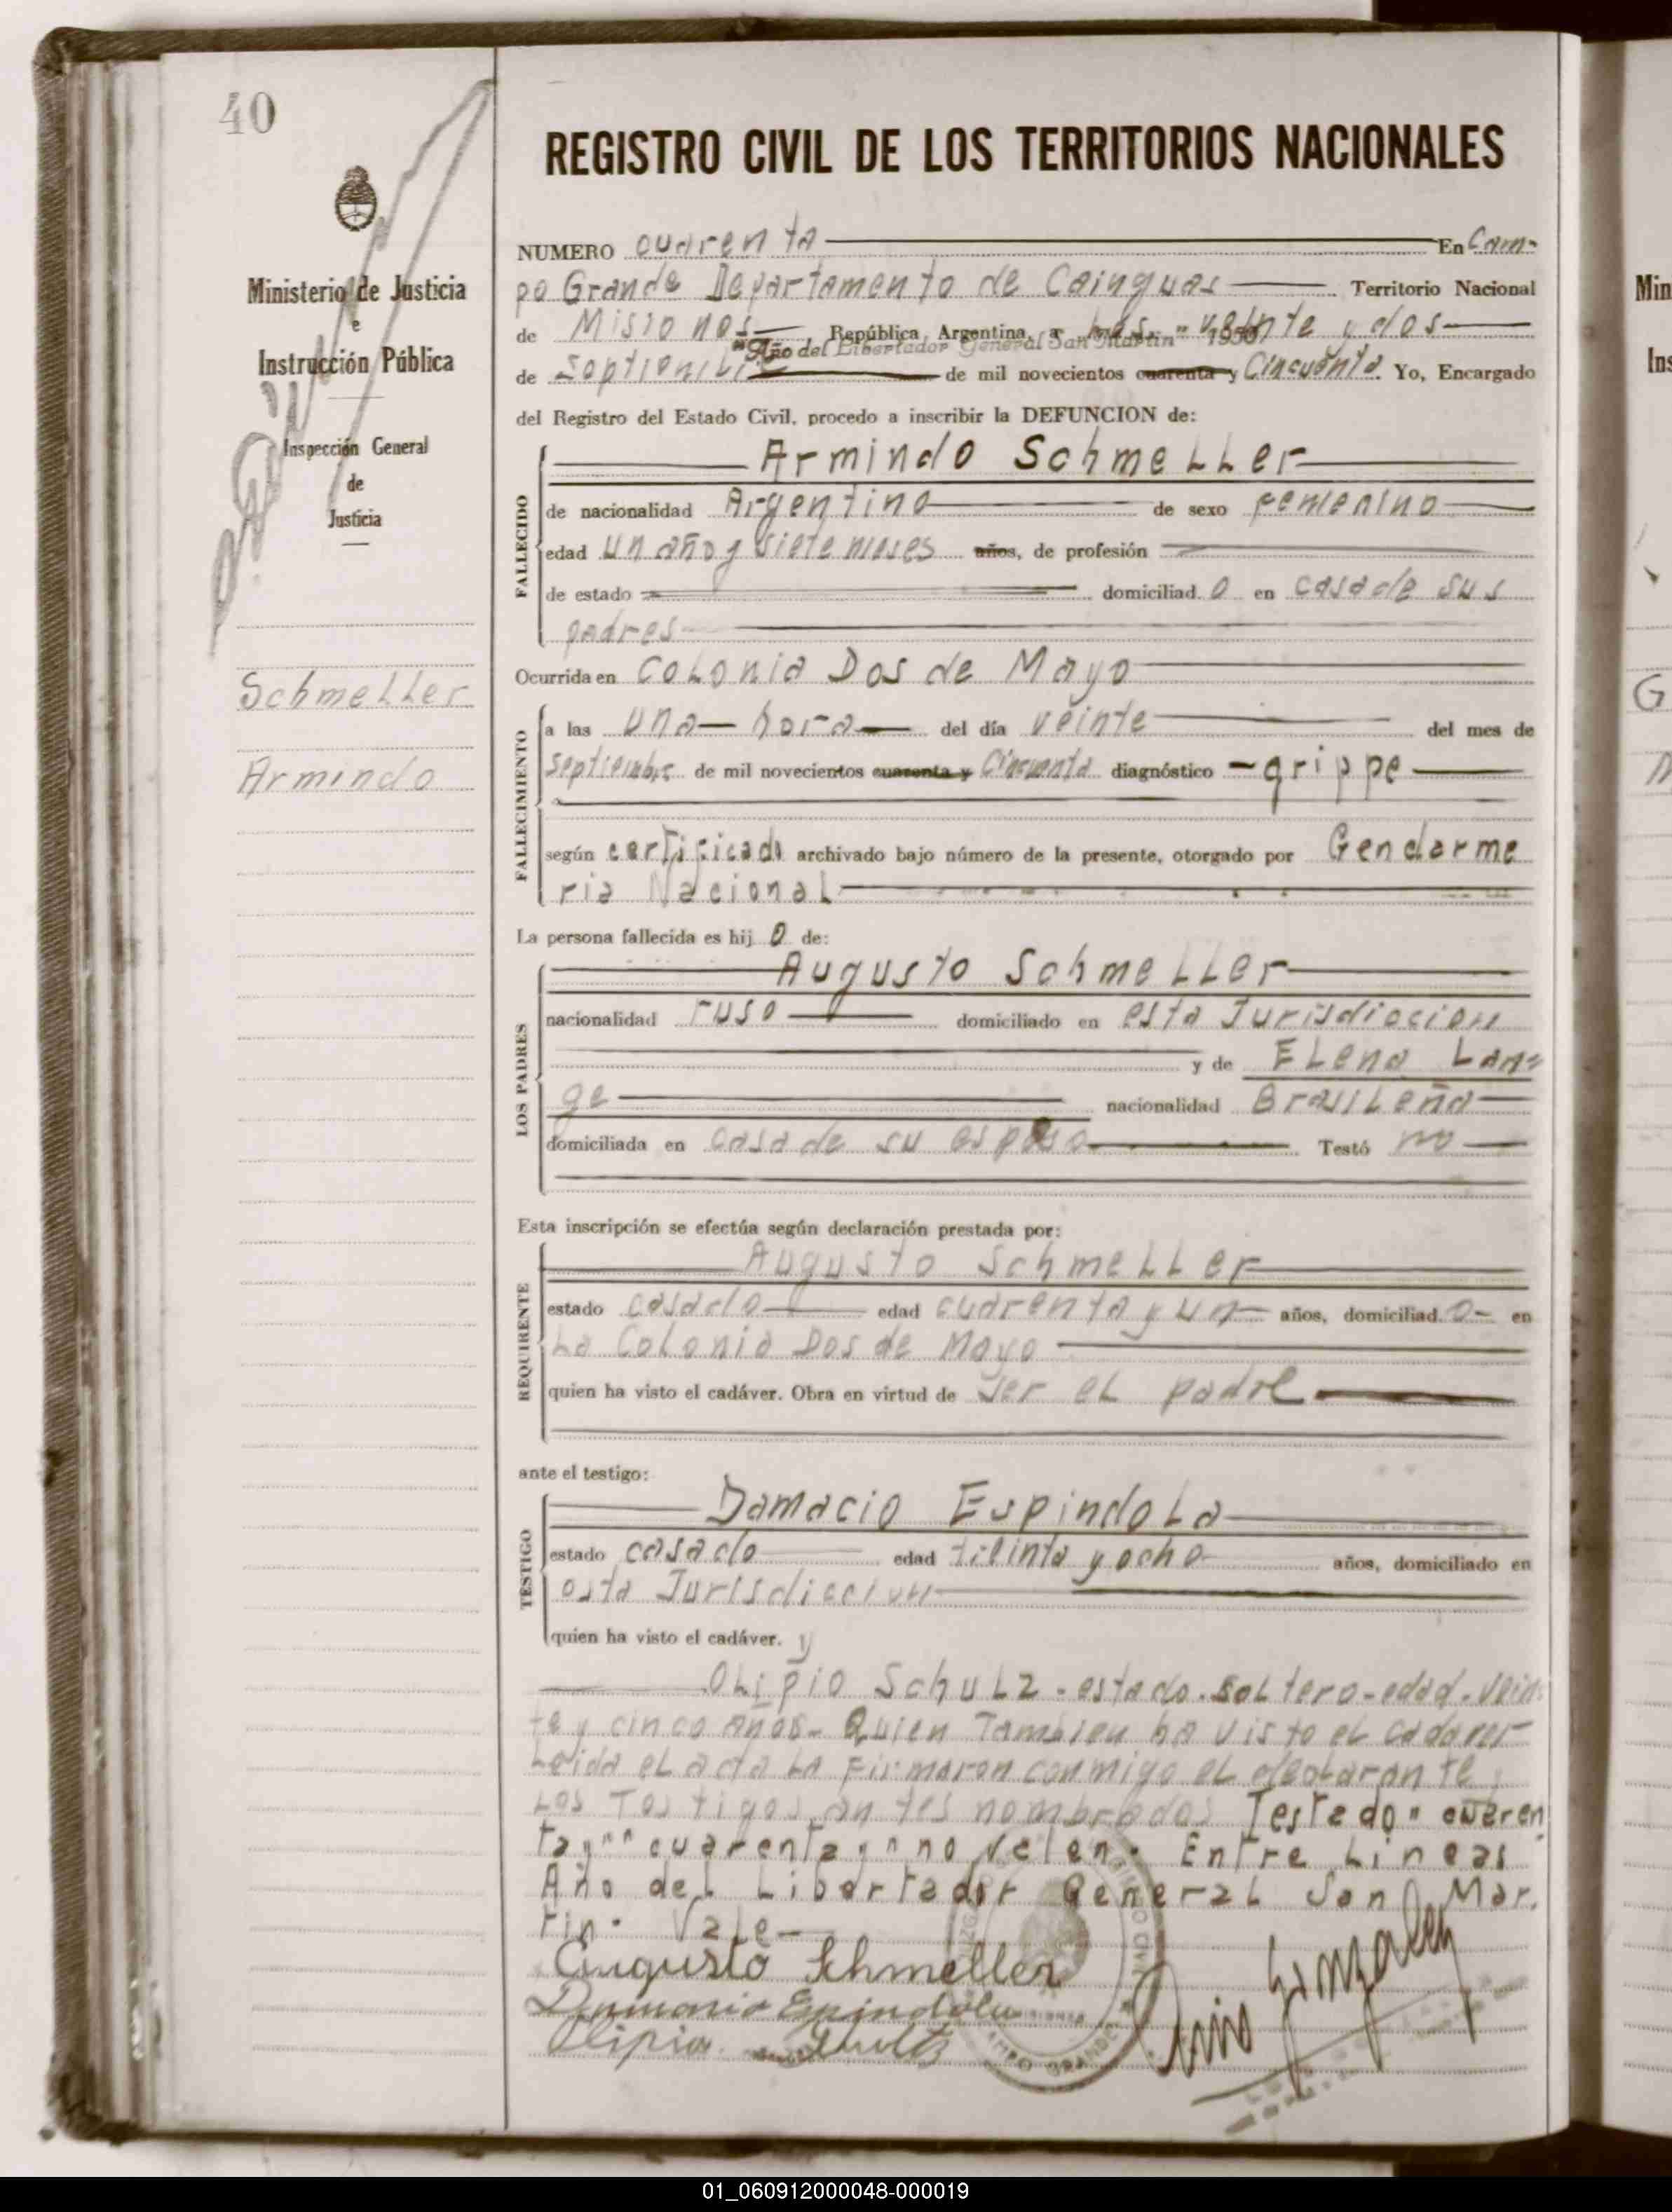 40
REGISTRO CIVIL DE LOS TERRITORIOS NACIONALES
Ministerio de Justicia
e
Instrucción Pública
Inspección General
de
Justicia
Schmeller
Armindo
NUMERO cuarenta En Cam-
po Grande Departamento de Cainguas Territorio Nacional
de Misiones República Argentina, a veinte y dos
"Año del Libertador General San Martin" 1950
de Septiembre de mil novecientos cuarenta y Cincuenta. Yo, Encargado
del Registro del Estado Civil, procedo a inscribir la DEFUNCION de:
FALLECIDO
Armindo Schmeller
de nacionalidad Argentino de sexo femenino
edad un año y siete meses años, de profesión
de estado domiciliad o en casa de sus
padres
Ocurrida en Colonia Dos de Mayo
FALLECIMIENTO
a las una hora del día veinte del mes de
septiembre de mil novecientos cuarenta y Cincuenta diagnóstico - grippe
según certificado archivado bajo número de la presente, otorgado por Gendarme
ria Nacional
La persona fallecida es hij o de:
LOS PADRES
Augusto Schmeller
nacionalidad ruso domiciliado en esta Jurisdiccion
y de Elena Lan-
ge nacionalidad Brasileña
domiciliada en casa de su esposo Testó no
Esta inscripción se efectúa según declaración prestada por:
REQUIRENTE
Augusto Schmeller
estado casado edad cuarenta y un años, domiciliad o en
La Colonia Dos de Mayo
quien ha visto el cadáver. Obra en virtud de ser el padre
ante el testigo:
TESTIGO
Damacio Espindola
estado casado edad treinta y ocho años, domiciliado en
esta Jurisdiccion
quien ha visto el cadáver. y
Olipio Schulz - estado - soltero - edad - vein
te y cinco años - Quien Tambien ha visto el cadaver
Leida el acta La Firmaron conmigo el declarante y
Los Testigos antes nombrados Testado " cuaren
ta y " " cuarenta y " no valen. Entre Lineas
Año del Libertador General San Mar.
tin. Vale
Augusto Schmeller
Damacio Espindola
Olipio Schultz
CAMPO GRANDE
01_060912000048-000019